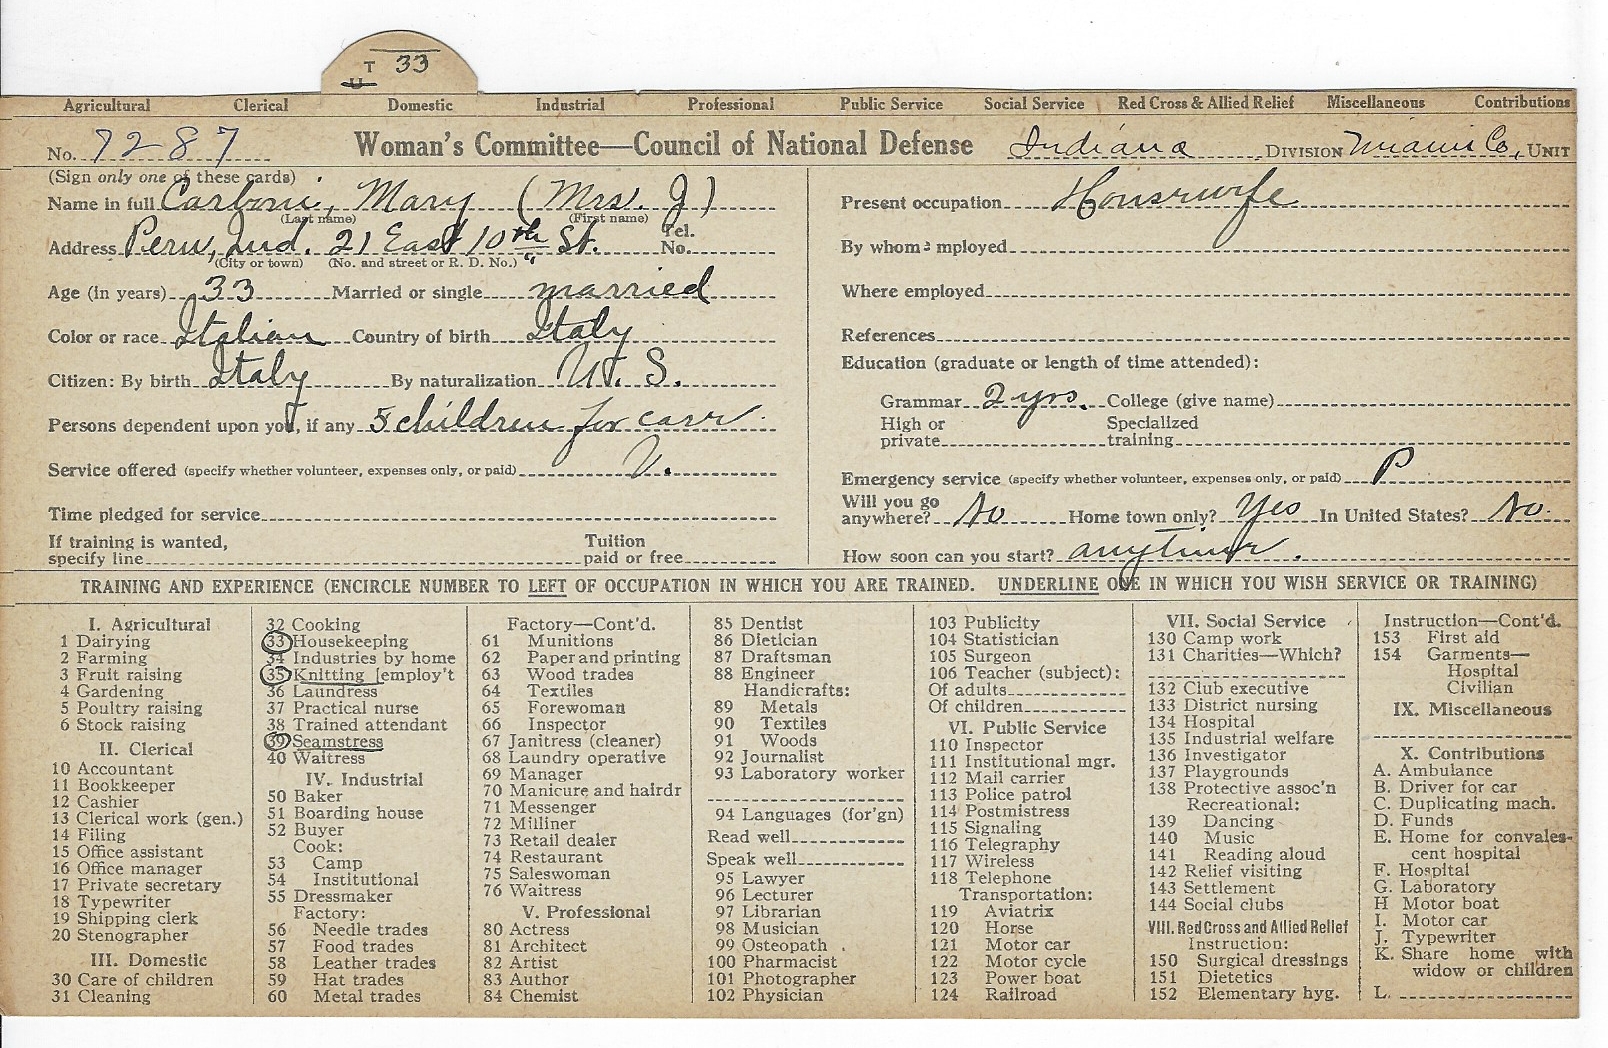 T 33
U
Agricultural Clerical Domestic Industrial Professional Public Service Social Service Red Cross & Allied Relief Miscellaneous Contributions
No. 7287 Woman's Committee—Council of National Defense Indiana DIVISION Miami Co, UNIT
(Sign only one of these cards)
Name in full Carboni, Mary (Mrs. J)
(Last name) (First name)
Address Peru, Ind. 21 East 10th St. Tel. No.
(City or town) (No. and street or R. D. No.)
Age (in years) 33 Married or single married
Color or race Italian Country of birth Italy
Citizen: By birth Italy By naturalization U. S.
Persons dependent upon you, if any 5 children for care
Service offered (specify whether volunteer, expenses only, or paid) V.
Time pledged for service
If training is wanted,
specify line Tuition paid or free
Present occupation Housewife
By whom employed
Where employed
References
Education (graduate or length of time attended):
Grammar 2 yrs. College (give name)
High or private Specialized training
Emergency service (specify whether volunteer, expenses only, or paid) P
Will you go anywhere? No Home town only? Yes In United States? No.
How soon can you start? anytime.
TRAINING AND EXPERIENCE (ENCIRCLE NUMBER TO LEFT OF OCCUPATION IN WHICH YOU ARE TRAINED. UNDERLINE ONE IN WHICH YOU WISH SERVICE OR TRAINING)
I. Agricultural
1 Dairying
2 Farming
3 Fruit raising
4 Gardening
5 Poultry raising
6 Stock raising
II. Clerical
10 Accountant
11 Bookkeeper
12 Cashier
13 Clerical work (gen.)
14 Filing
15 Office assistant
16 Office manager
17 Private secretary
18 Typewriter
19 Shipping clerk
20 Stenographer
III. Domestic
30 Care of children
31 Cleaning
32 Cooking
33 Housekeeping
34 Industries by home
35 Knitting [employ't
36 Laundress
37 Practical nurse
38 Trained attendant
39 Seamstress
40 Waitress
IV. Industrial
50 Baker
51 Boarding house
52 Buyer
Cook:
53 Camp
54 Institutional
55 Dressmaker
Factory:
56 Needle trades
57 Food trades
58 Leather trades
59 Hat trades
60 Metal trades
Factory—Cont'd.
61 Munitions
62 Paper and printing
63 Wood trades
64 Textiles
65 Forewoman
66 Inspector
67 Janitress (cleaner)
68 Laundry operative
69 Manager
70 Manicure and hairdr
71 Messenger
72 Milliner
73 Retail dealer
74 Restaurant
75 Saleswoman
76 Waitress
V. Professional
80 Actress
81 Architect
82 Artist
83 Author
84 Chemist
85 Dentist
86 Dietician
87 Draftsman
88 Engineer
Handicrafts:
89 Metals
90 Textiles
91 Woods
92 Journalist
93 Laboratory worker
94 Languages (for'gn)
Read well
Speak well
95 Lawyer
96 Lecturer
97 Librarian
98 Musician
99 Osteopath
100 Pharmacist
101 Photographer
102 Physician
103 Publicity
104 Statistician
105 Surgeon
106 Teacher (subject):
Of adults
Of children
VI. Public Service
110 Inspector
111 Institutional mgr.
112 Mail carrier
113 Police patrol
114 Postmistress
115 Signaling
116 Telegraphy
117 Wireless
118 Telephone
Transportation:
119 Aviatrix
120 Horse
121 Motor car
122 Motor cycle
123 Power boat
124 Railroad
VII. Social Service
130 Camp work
131 Charities—Which?
132 Club executive
133 District nursing
134 Hospital
135 Industrial welfare
136 Investigator
137 Playgrounds
138 Protective assoc'n
Recreational:
139 Dancing
140 Music
141 Reading aloud
142 Relief visiting
143 Settlement
144 Social clubs
VIII. Red Cross and Allied Relief
Instruction:
150 Surgical dressings
151 Dietetics
152 Elementary hyg.
Instruction—Cont'd.
153 First aid
154 Garments—
Hospital
Civilian
IX. Miscellaneous
X. Contributions
A. Ambulance
B. Driver for car
C. Duplicating mach.
D. Funds
E. Home for convales-
cent hospital
F. Hospital
G. Laboratory
H Motor boat
I. Motor car
J. Typewriter
K. Share home with
widow or children
L.